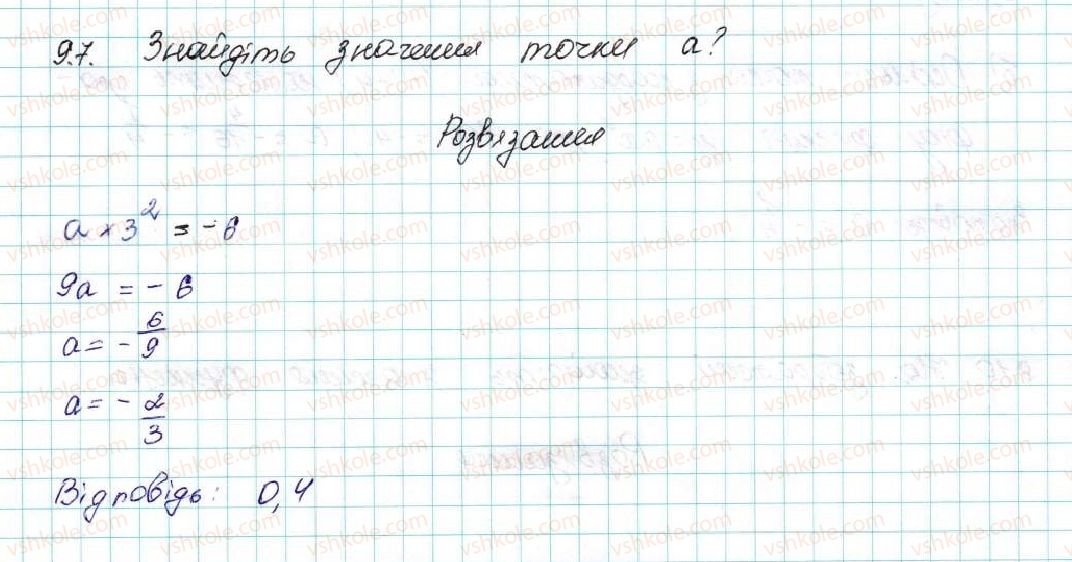 9.7. Знайдіть значення точки а?
Розвязання
a × 3² = -6
9a = - 6
a = - 6/9
a = - 2/3
Відповідь: 0,4